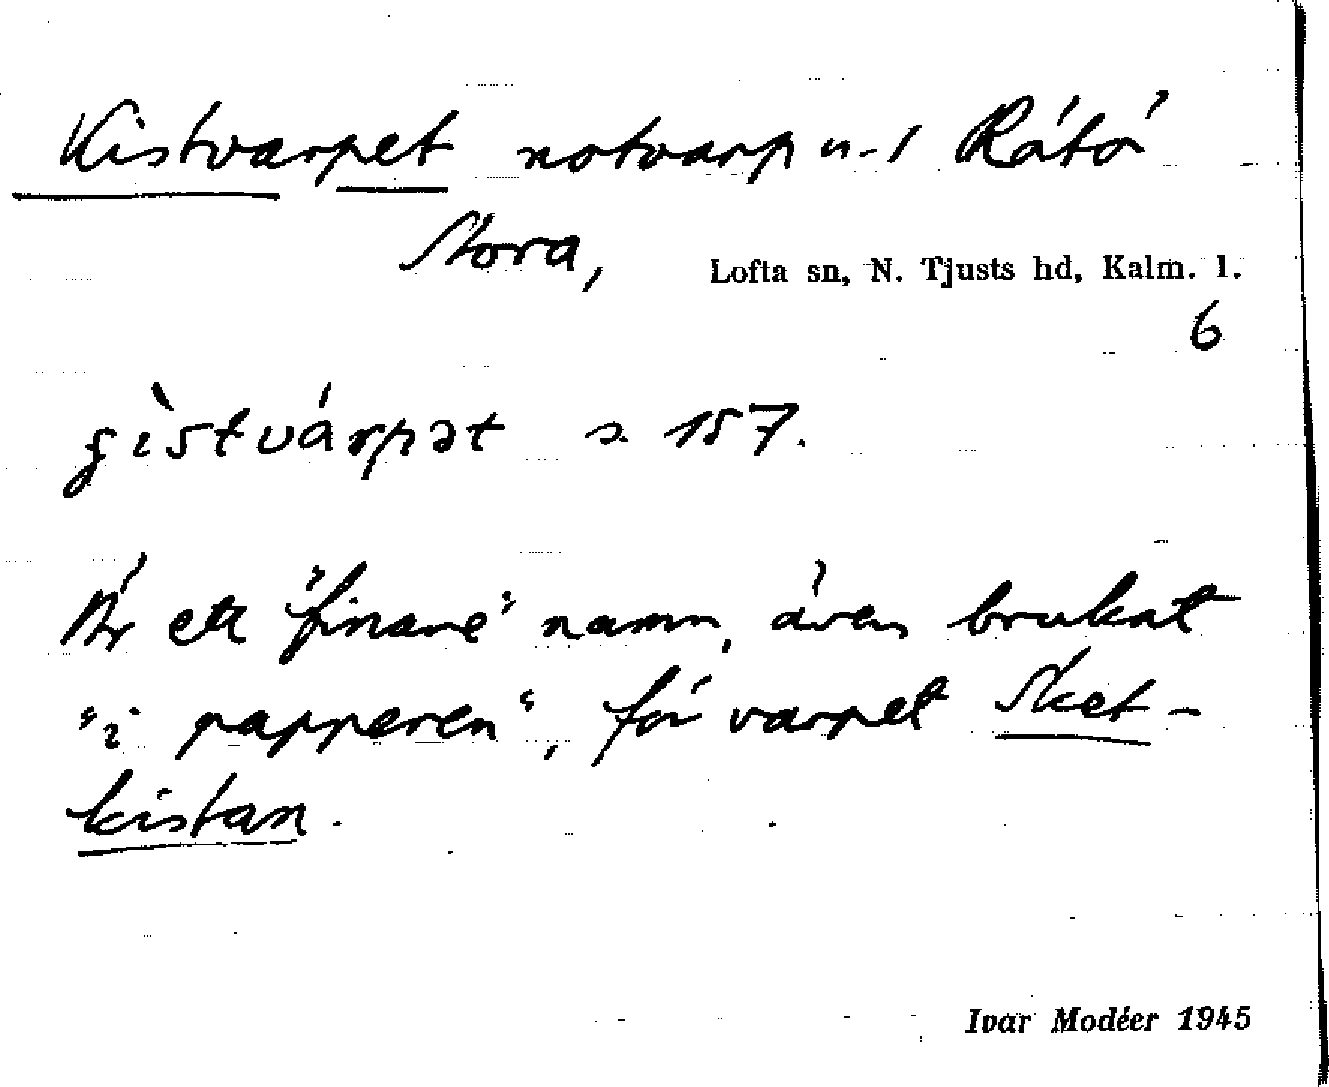 Kistvarpet notvarp n-1 Rátó
Stora,
Lofta sn, N. Tjusts hd, Kalm. l.
6
s. 157.
Är ett "finare" namn, även brukat
"i papperen", för varpet Sket-
kistan.
Ivar Modéer 1945